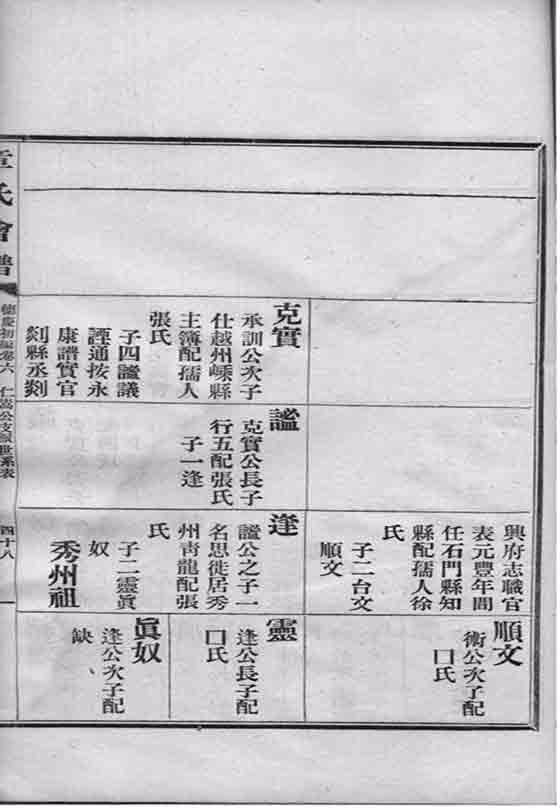 克實
承訓公次子
仕越州嵊縣
主簿配孺人
張氏
子四謐議
諲通按永
康譜實官
剡縣丞剡
謐
克實公長子
行五配張氏
子一逢
興府志職官
表元豐年間
任石門縣知
縣配孺人徐
氏
子二台文
順文
逢
謐公之子一
名思徙居秀
州靑龍配張
氏
子二靈眞
奴
秀州祖
順文
術公次子配
口氏
靈
逢公長子配
口氏
眞奴
逢公次子配
缺、
章氏會譜
德慶初編卷六
仁嵩公支派世系表
四十八